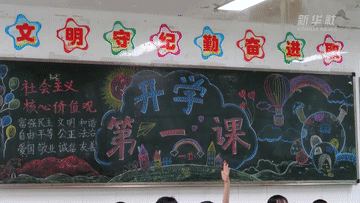 新华社
文明守纪勤奋进取
社会主义
核心价值观
富强 民主 文明 和谐
自由 平等 公正 法治
爱国 敬业 诚信 友善
开学
第一课